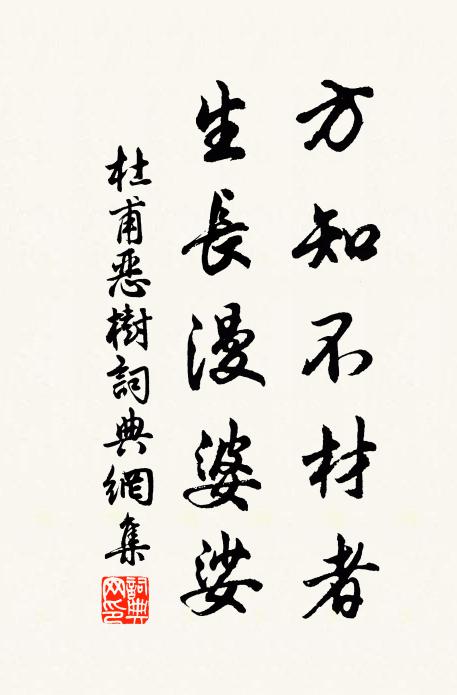 方知不材者
生長漫婆娑
杜甫惡樹詞典網集
詞典網印